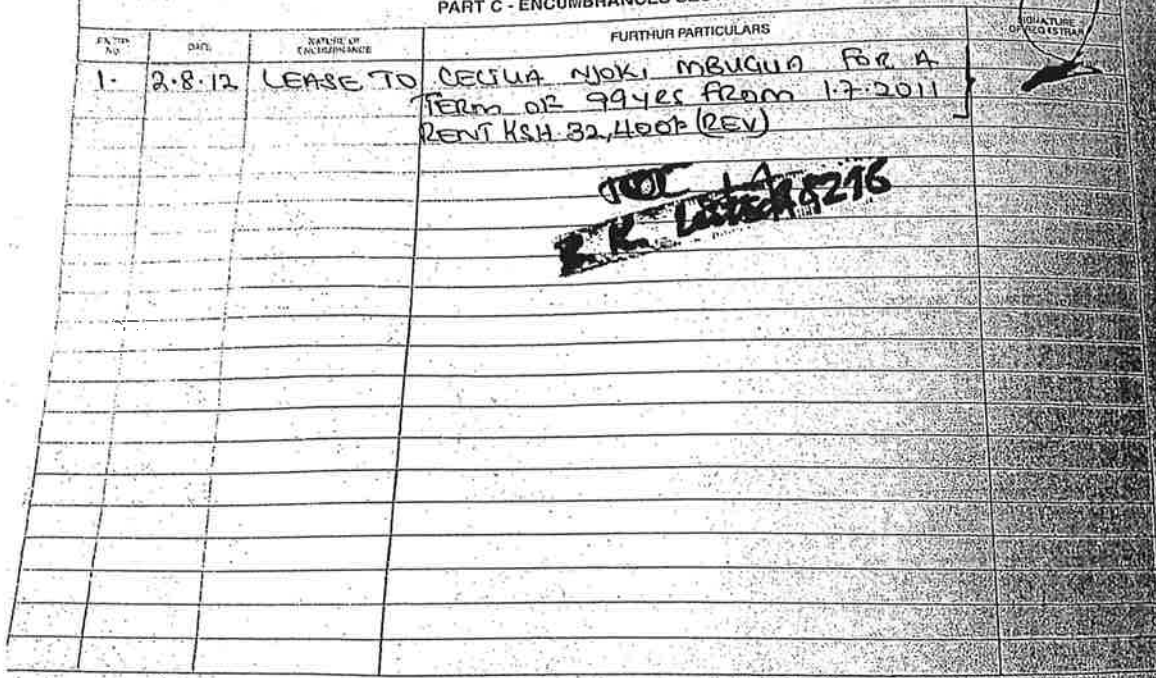 PART C - ENCUMBRANCES
ENTRY NO. DATE NATURE OF ENCUMBRANCE FURTHUR PARTICULARS SIGNATURE OF REGISTRAR
1. 2.8.12 LEASE TO CECILIA NJOKI MBUGUA FOR A
TERM OF 99YRS FROM 1.7.2011
RENT KSH 32,400/= (REV)